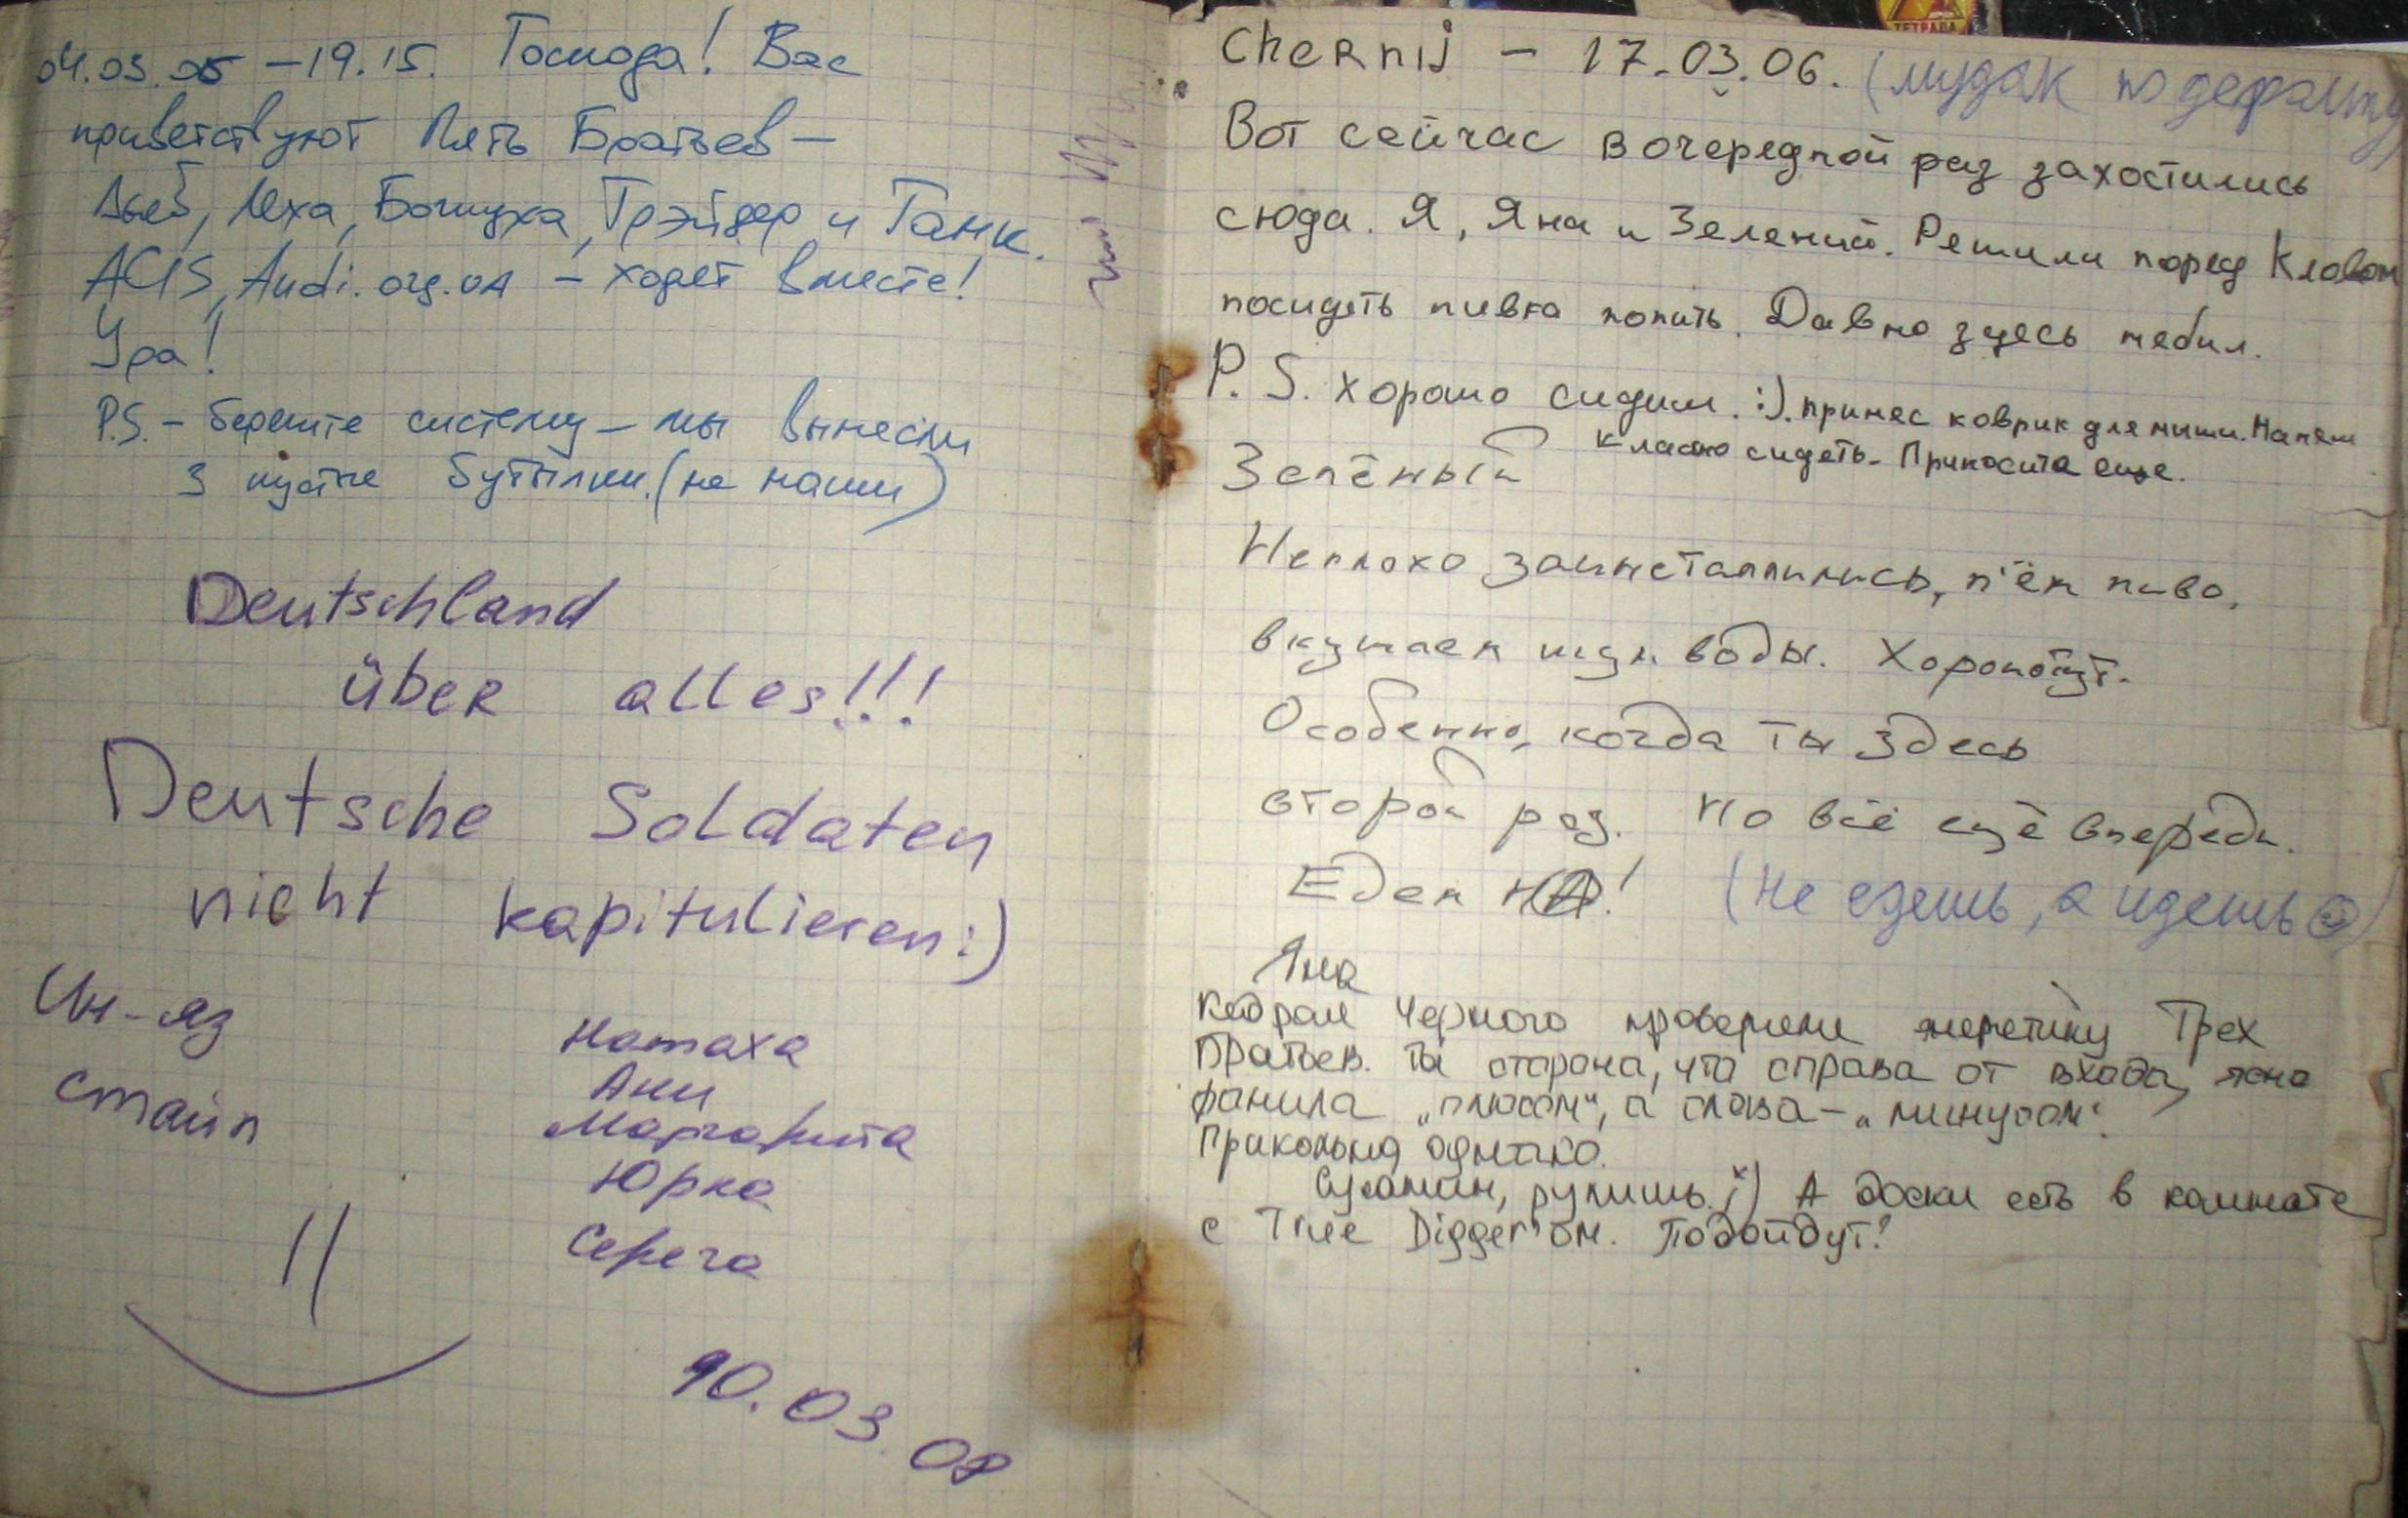 04.03.05 – 19.15. Господа! Вас
приветствуют Пять Братьев –
Лёха, Боцмуха, Трэйдер и Танк.
Audi.org.ua – ходят вместе!
Ура!
P.S. – берегите систему – мы вынесли
3 пустые бутылки. (не наши)
Deutschland
über alles!!!
Deutsche Soldaten
nicht kapitulieren :)
Ин-яз
стайл
Наташа
Ани
Маргарита
Юрка
Серега
10.03.08
Chernij – 17.03.06. (мудак по дефолту)
Вот сейчас в очередной раз захостились
сюда. Я, Яна и Зеленый. Решили перед Кловом
посидеть пивка попить. Давно здесь небил.
P.S. хорошо сидим. :). принес коврик для мыши. На нем
классно сидеть. Приносите еще.
Зелёный
Неплохо заинсталлились, п'ём пиво,
вкушаем шум воды. Хорошо тут.
Особенно, когда ты здесь
второй раз. Но всё ещё впереди.
Едем НА! (Не едешь, а идешь☺)
Яна
Кедрам Черного проверяли Трех
Братьев. Та сторона, что справа от входа,
фанила „плюсом", а слева – „минусом".
Прикольно однако.
рулишь. ;) А доски есть в комнате
с True Digger'ом. Подойдут?
ТЕТРАДА